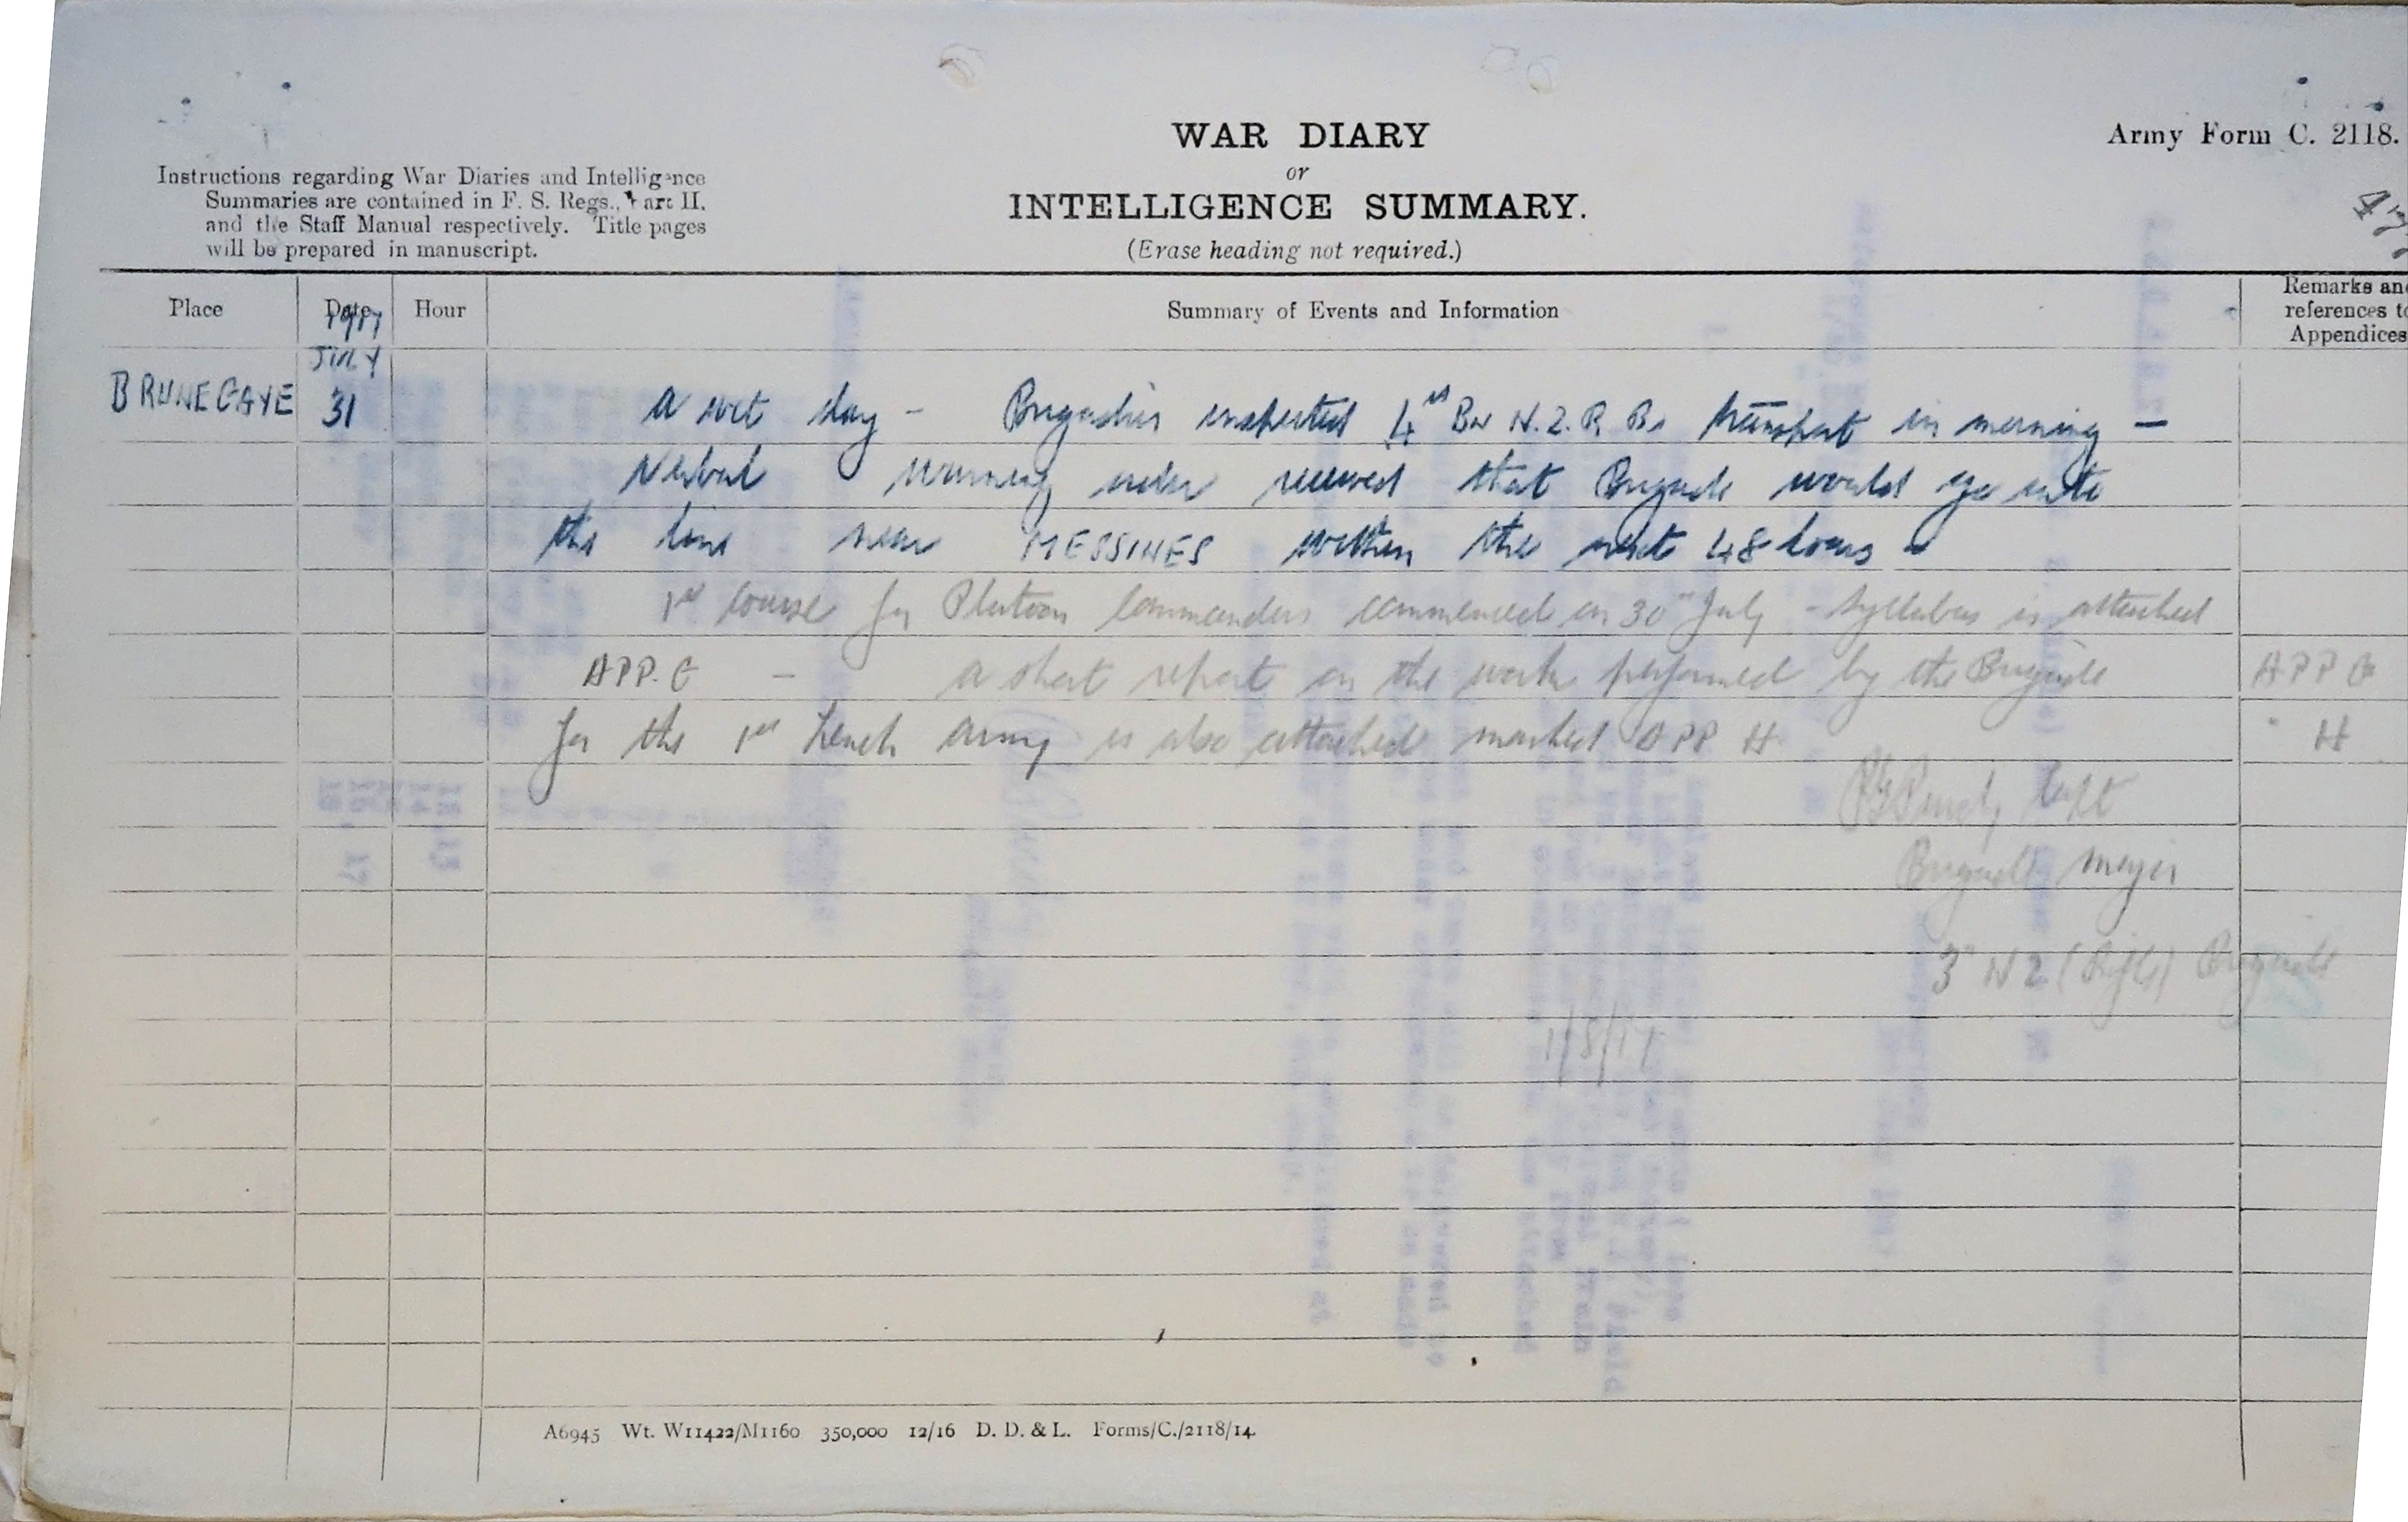 WAR DIARY
or
INTELLIGENCE SUMMARY.
(Erase heading not required.)
Army Form C. 2118.
Instructions regarding War Diaries and Intelligence
Summaries are contained in F. S. Regs., Part II.
and the Staff Manual respectively. Title pages
will be prepared in manuscript.
Place Date Hour Summary of Events and Information Remarks and references to Appendices
1917
JULY
BRUNEGAYE 31 A wet day - Brigadier inspected 4th Bn N.Z.R.B. transport in morning -
Verbal warning order received that Brigade would go into
the line near MESSINES within the next 48 hours
1st Course for Platoon Commanders commenced on 30th July - Syllabus is attached
APP. G - A short report on the work performed by the Brigade APP G
for the 1st French Army is also attached marked APP H " H
Capt
Brigade Major
3rd N Z (Rifle) Brigade
1/8/17
A6945 Wt. W11422/M1160 350,000 12/16 D. D. & L. Forms/C./2118/14.